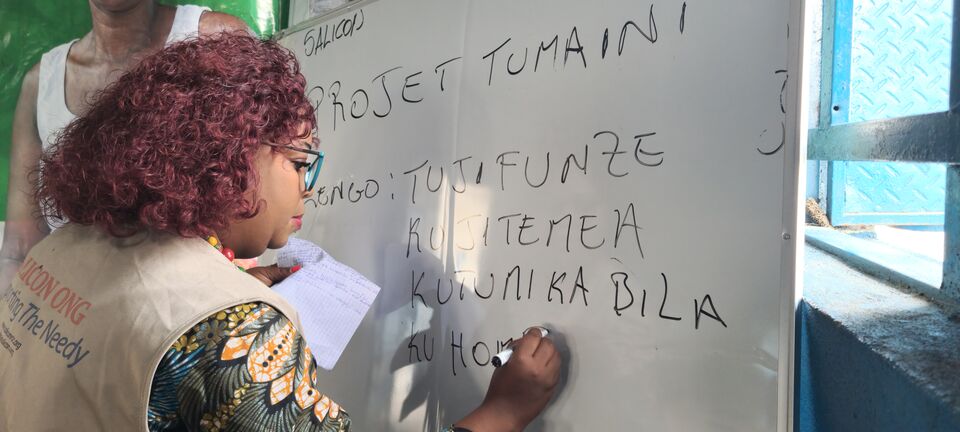 SALICON
PROJET TUMAINI
LENGO: TUJIFUNZE
KUJITEMEA
KUTUMIKA BILA
KU HOM
LICON ONG
The Needy